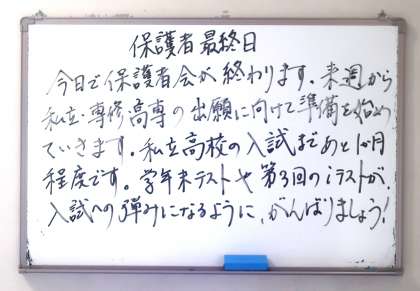 保護者最終日
今日で保護者会が終わります。来週から
私立・専修・高専の出願に向けて準備を始め
ていきます。私立高校の入試まであと1か月
程度です。学年末テストや第3回のiテストが、
入試への弾みになるように、がんばりましょう!